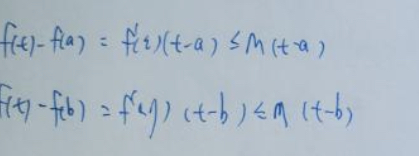 f(t)-f(a) = f'(ξ)(t-a) ≤ M(t-a)
f(t)-f(b) = f'(η)(t-b) ≤ M(t-b)